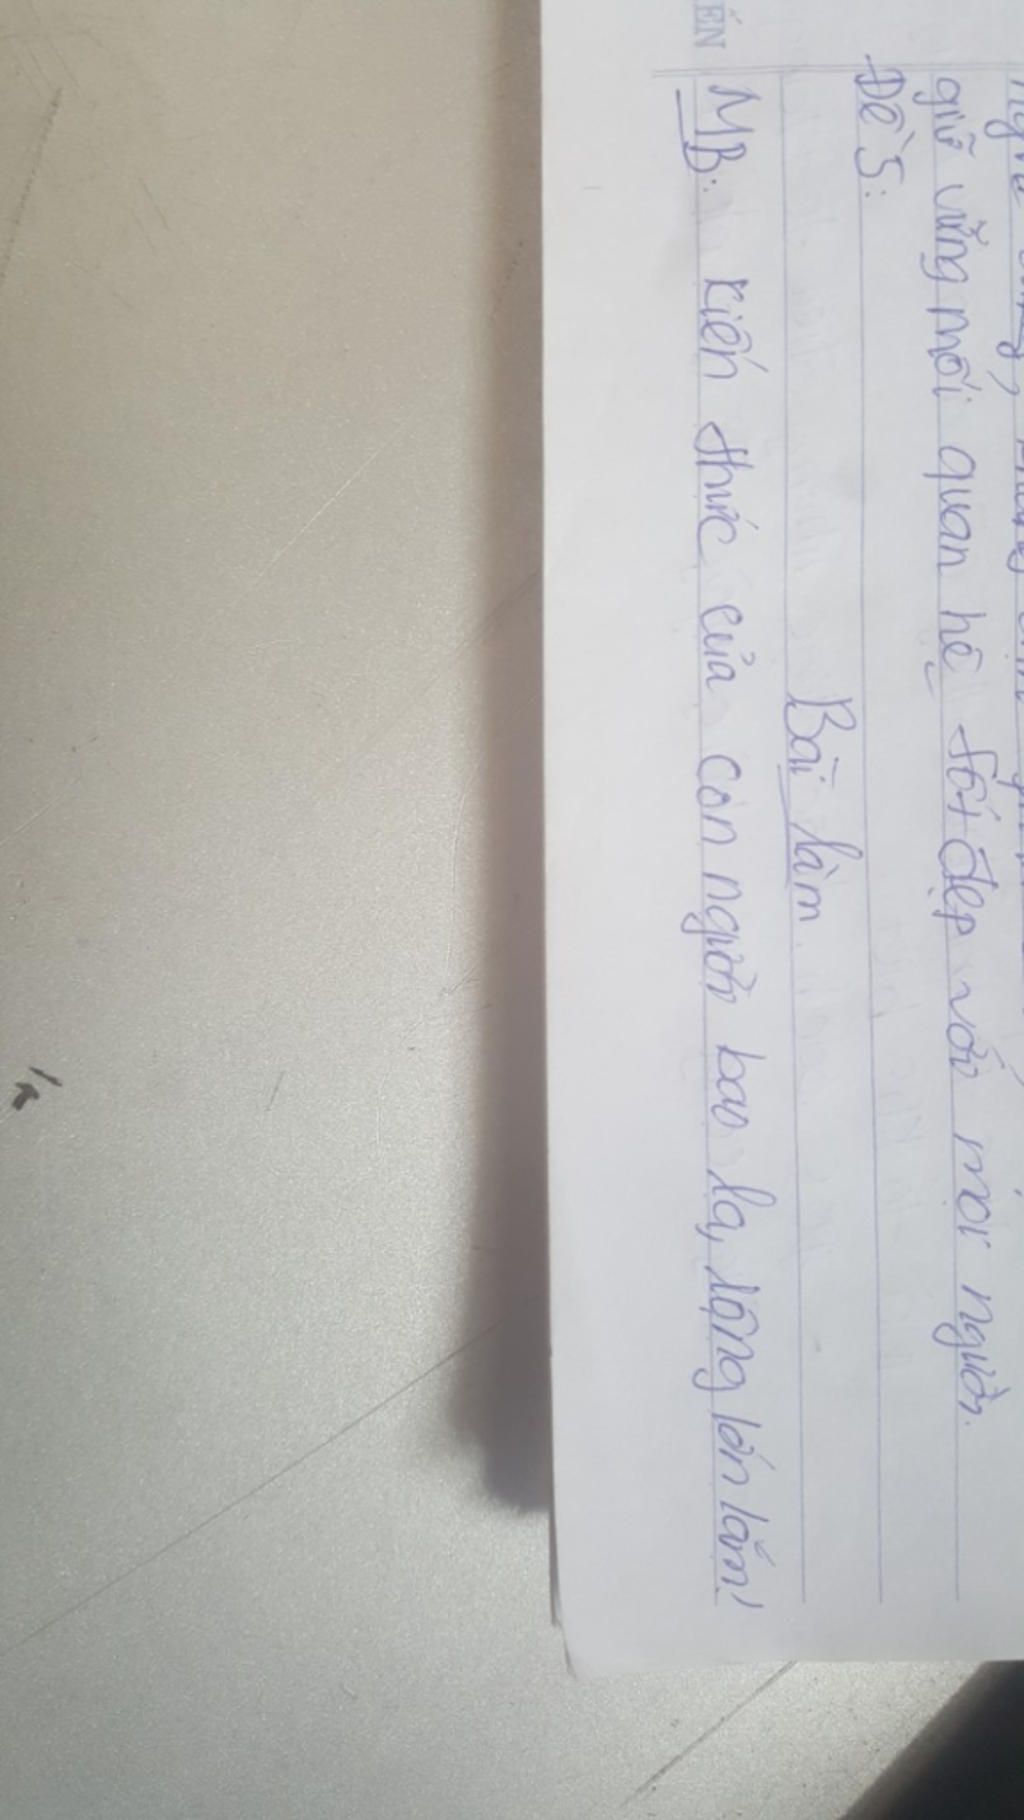 giữ vững mối quan hệ tốt đẹp với mọi người.
Đề 5:
Bài làm
MB: Kiến thức của con người bao la, rộng lớn lắm!
ẾN